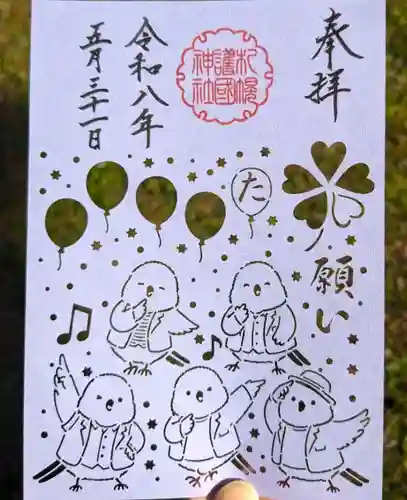 奉拝
札幌
護國
神社
令和八年
五月三十一日
た
願い